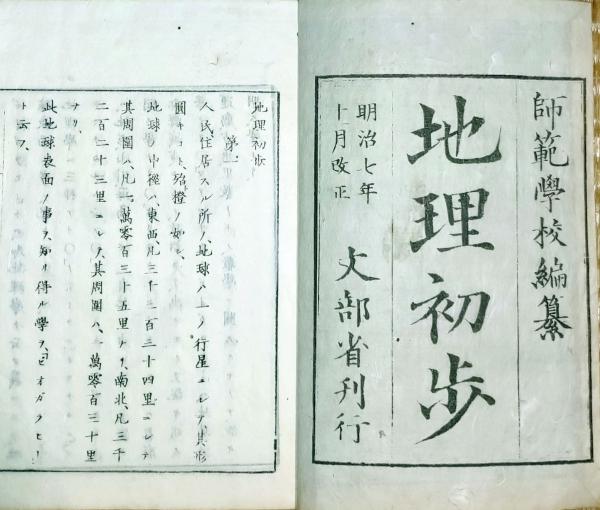 師範學校編纂
地理初歩
明治七年
十月改正
文部省刊行
地理初歩
第一
人民、住居スル所ノ、地球ハ一ノ行星ニシテ、其形
圓キコト、殆橙ノ如シ、
地球ノ中徑ハ、東西、凡三千二百三十四里ニシテ
其周圍ハ、凡一萬零百三十五里ナリ、南北、凡三千
二百二十三里ニシテ、其周圍ハ、一萬零百二十里
ナリ、
此地球表面ノ事ヲ、知リ得ル學ヲ、ゼオガラヒー
ト云フ、